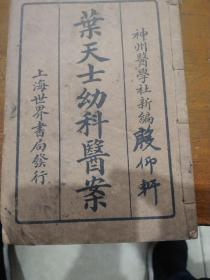 神州醫學社新編
殷仰軒
葉天士幼科醫案
上海世界書局發行